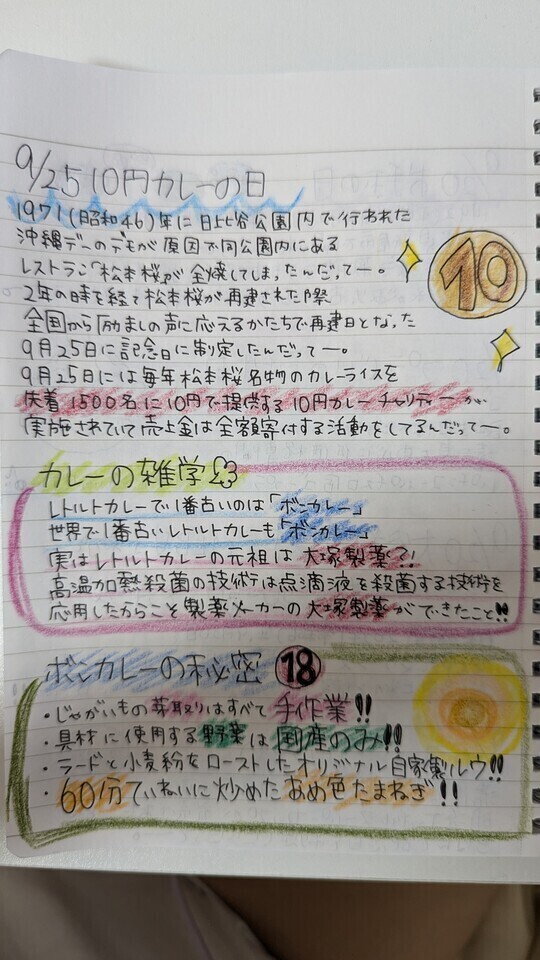 9/25 10円カレーの日
1971(昭和46)年に日比谷公園内で行われた
沖縄デーのデモが原因で同公園内にある
レストラン「松本楼」が全焼してしまったんだってー。
2年の時を経て松本楼が再建された際
全国から励ましの声に応えるかたちで再建日となった
9月25日に記念日に制定したんだってー。
9月25日には毎年松本楼名物のカレーライスを
先着1500名に10円で提供する10円カレーチャリティーが
実施されていて売上金は全額寄付する活動をしてるんだってー。
10
カレーの雑学
レトルトカレーで1番古いのは「ボンカレー」
世界で1番古いレトルトカレーも「ボンカレー」
実はレトルトカレーの元祖は大塚製薬?!
高温加熱殺菌の技術は点滴液を殺菌する技術を
応用したからこそ製薬メーカーの大塚製薬ができたこと!!
ボンカレーの秘密 18
・じゃがいもの芽取りはすべて手作業!!
・具材に使用する野菜は国産のみ!!
・ラードと小麦粉をローストしたオリジナル自家製ルウ!!
・60分ていねいに炒めたあめ色たまねぎ!!